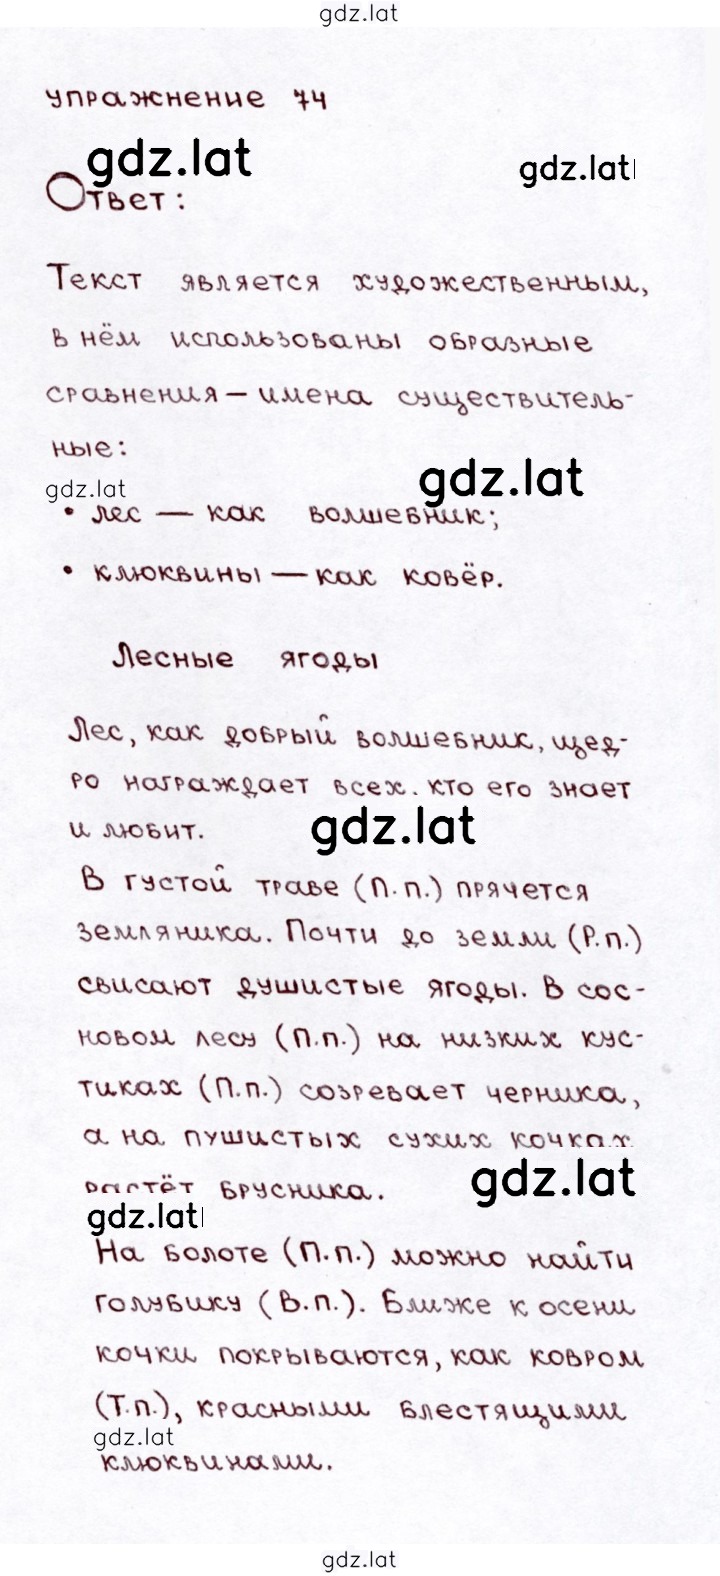 gdz.lat
упражнение 74
gdz.lat
gdz.lat
Ответ:
Текст является художественным,
в нём использованы образные
сравнения – имена существитель-
ные:
gdz.lat
gdz.lat
• лес — как волшебник;
• клюквины — как ковёр.
Лесные ягоды
Лес, как добрый волшебник, щед-
ро награждает всех. кто его знает
и любит.
gdz.lat
В густой траве (П.п.) прячется
земляника. Почти до земли (Р.п.)
свисают душистые ягоды. В сос-
новом лесу (П.п.) на низких кус-
тиках (П.п.) созревает черника,
а на пушистых сухих кочках
gdz.lat
растёт брусника.
gdz.lat
На болоте (П.п.) можно найти
голубику (В.п.). Ближе к осени
кочки покрываются, как ковром
(Т.п.), красными блестящими
gdz.lat
клюквинами.
gdz.lat